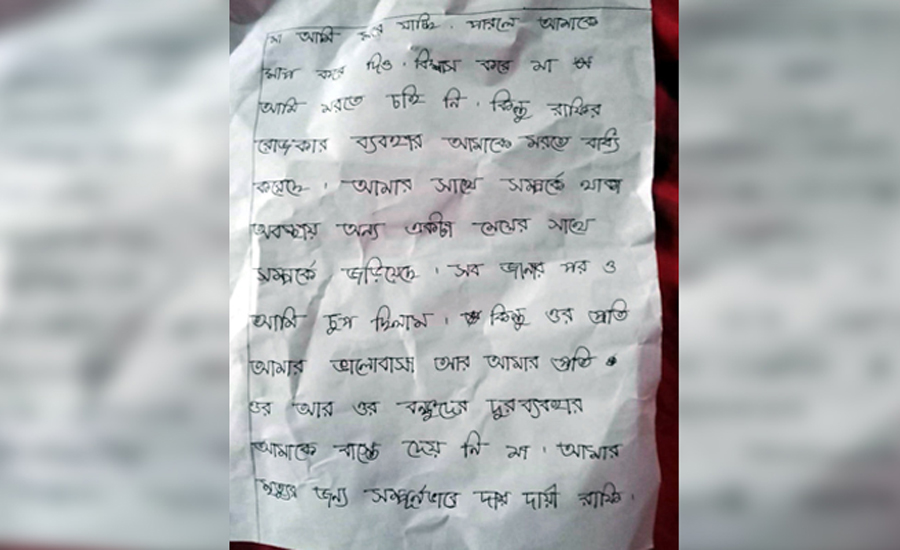 মা আমি মরে যাচ্ছি। পারলে আমাকে
মাপ করে দিও। বিশ্বাস করো মা
আমি মরতে চাই নি। কিন্তু রাফির
রোজকার ব্যবহার আমাকে মরতে বাধ্য
করেছে। আমার সাথে সম্পর্কে থাকা
অবস্থায় অন্য একটা মেয়ের সাথে
সম্পর্কে জড়িয়েছে। সব জানার পর ও
আমি চুপ ছিলাম। কিন্তু ওর প্রতি
আমার ভালোবাসা আর আমার প্রতি
ওর আর ওর বন্ধুদের দুরব্যবহার
আমাকে বাচতে দেয় নি মা। আমার
মৃত্যুর জন্য সম্পূর্নভাবে দায় দায়ী রাফি।